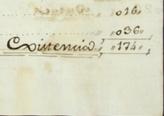 016
036
Existencia, 174,